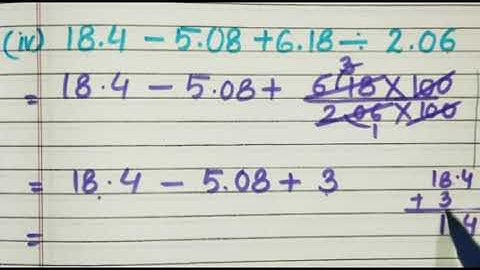 (iv) 18.4 - 5.08 + 6.18 ÷ 2.06
= 18.4 - 5.08 + 
3
618 × 100
2.06 × 100
1
= 18.4 - 5.08 + 3
18.4
+ 3
=